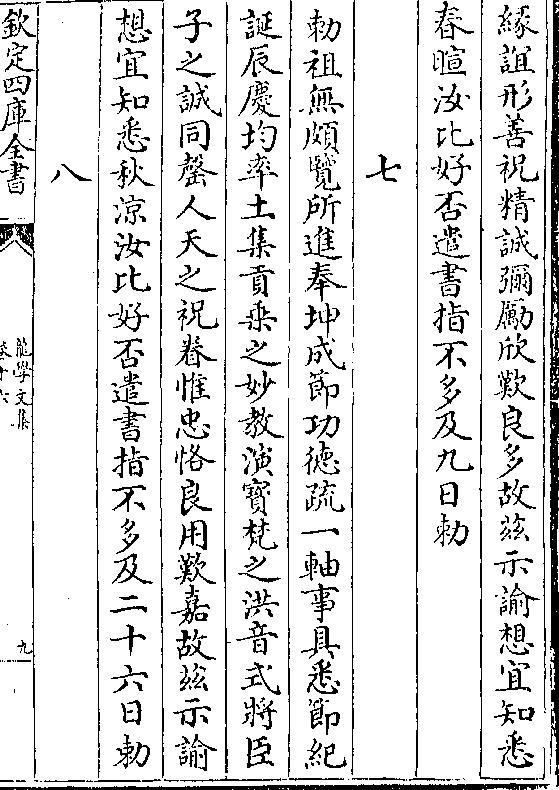 緣誼形善祝精誠彌勵欣歎良多故兹示諭想宜知悉
春暄汝比好否遣書指不多及九日勅
七
勅祖無頗覽所進奉坤成節功德疏一軸事具悉節紀
誕辰慶均率土集貢乗之妙教演寳梵之洪音式將臣
子之誠同罄人天之祝眷惟忠恪良用歎嘉故兹示諭
想宜知悉秋涼汝比好否遣書指不多及二十六日勅
八
欽定四庫全書
龍學文集
卷十六
九